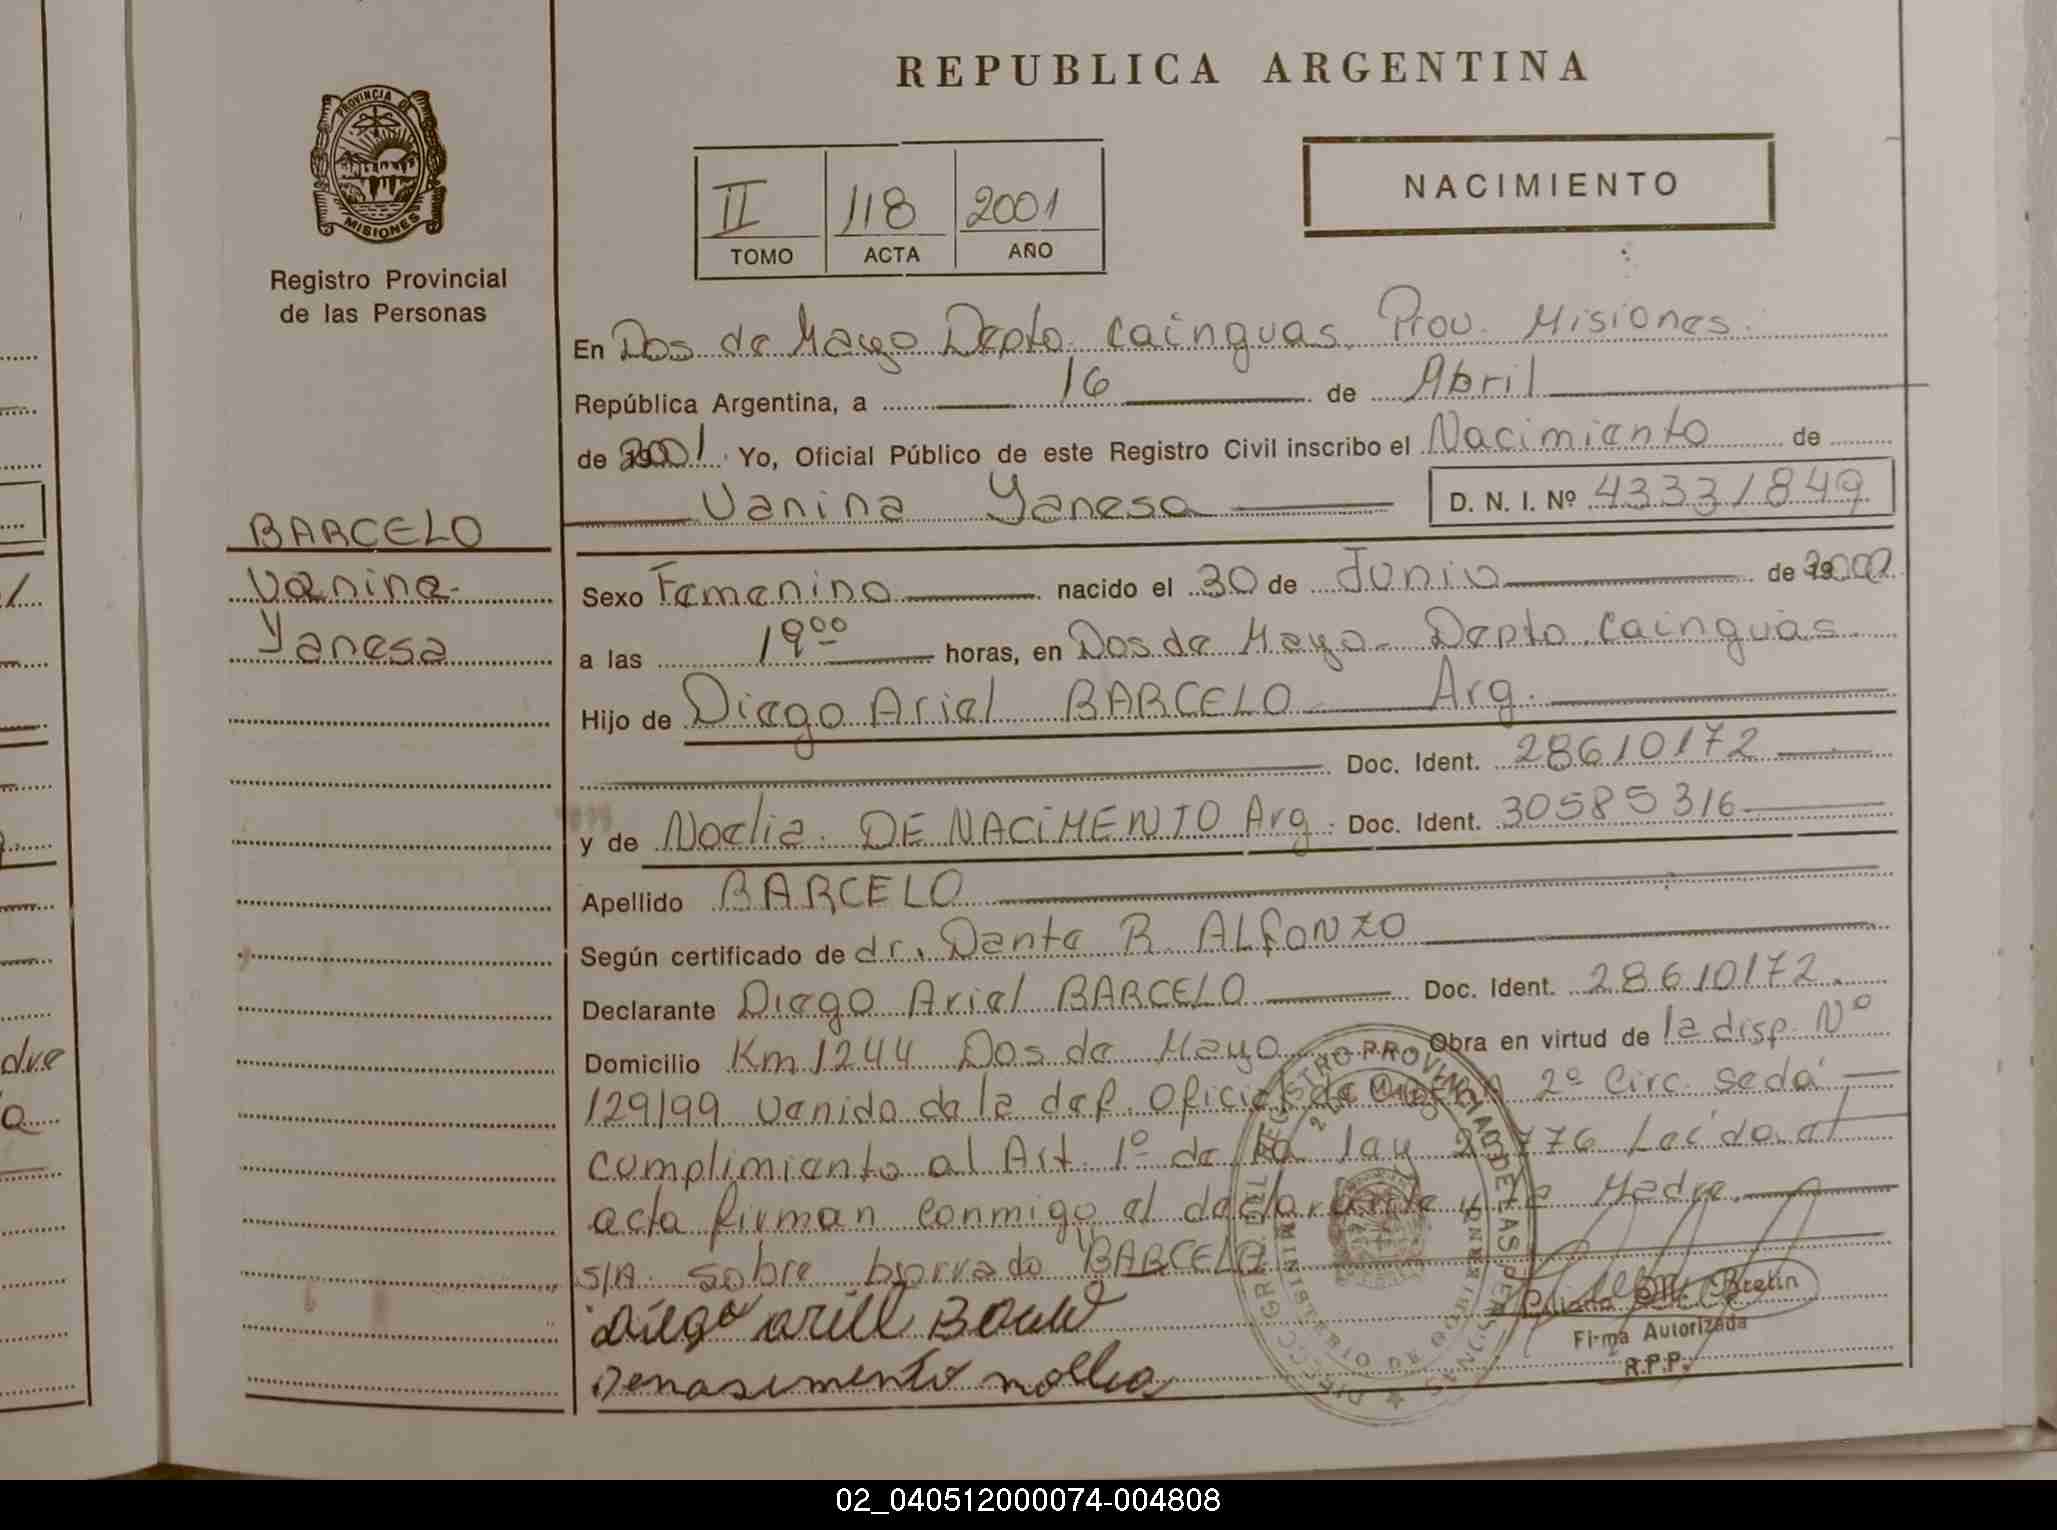 REPUBLICA ARGENTINA
PROVINCIA DE MISIONES
Registro Provincial
de las Personas
II 118 2001
TOMO ACTA AÑO
NACIMIENTO
En Dos de Mayo Depto. Cainguas. Prov. Misiones.
República Argentina, a 16 de Abril
de 2001. Yo, Oficial Público de este Registro Civil inscribo el Nacimiento de
Vanina Yanesa D. N. I. Nº 43331849
BARCELO
Vanina
Yanesa
Sexo Femenino nacido el 30 de Junio de 2000
a las 19⁰⁰ horas, en Dos de Mayo- Depto. Cainguas.
Hijo de Diego Ariel BARCELO Arg.
Doc. Ident. 28610172
y de Noelia DE NACIMENTO Arg. Doc. Ident. 30585316
Apellido BARCELO
Según certificado de dr. Dante R. ALFONZO
Declarante Diego Ariel BARCELO Doc. Ident. 28610172.
Domicilio Km 1244 Dos de Mayo Obra en virtud de la disp. Nº
129/99 venido de la def. Oficial de 2º Circ. se dá
cumplimiento al Art. 1º de la ley 2776 Leído el
acta firman conmigo el declarante y la Madre.
S/A. sobre borrado BARCELO
Denasimento noelia
Firma Autorizada
R.P.P.
dre
a
02_040512000074-004808